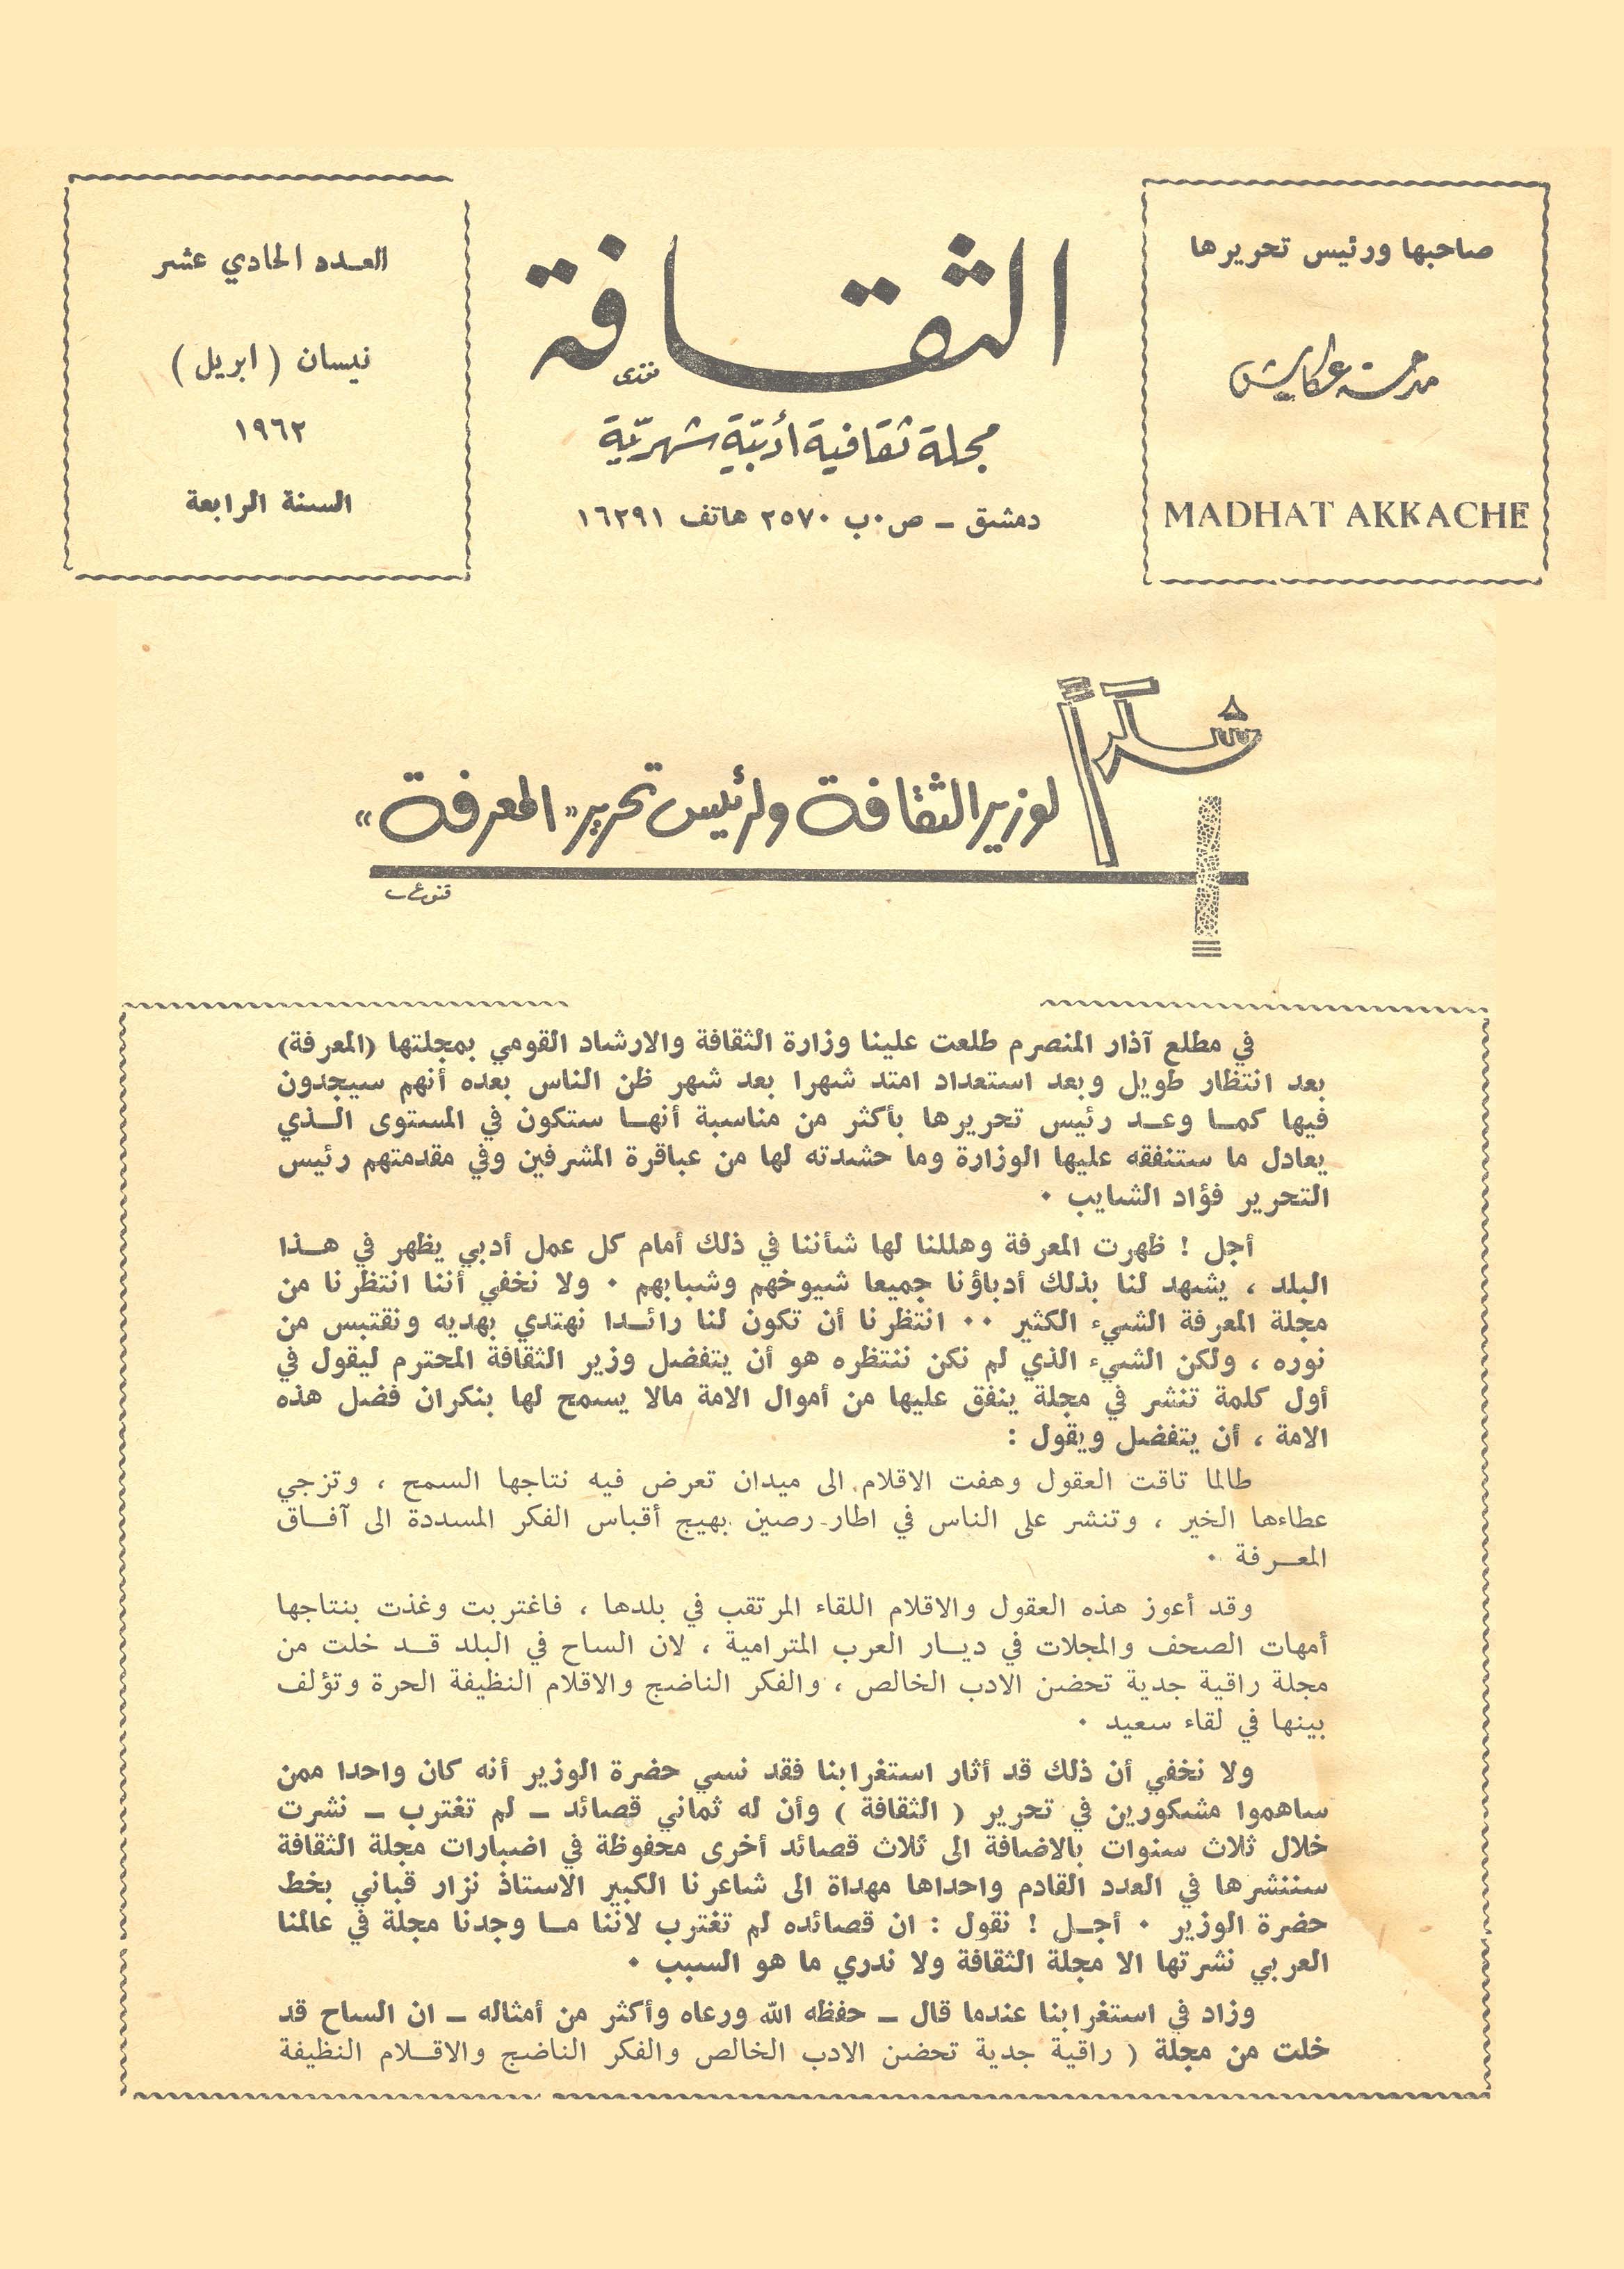 صاحبها ورئيس تحريرها
مدحة عكاش
MADHAT AKKACHE
الثقافة
مجلة ثقافية أدبيّة شهريّة
دمشق – ص٠ب ٢٥٧٠ هاتف ١٦٢٩١
العدد الحادي عشر
نيسان ( ابريل )
١٩٦٢
السنة الرابعة
شكراً
لوزير الثقافة ولرئيس تحرير «المعرفة»
في مطلع آذار المنصرم طلعت علينا وزارة الثقافة والارشاد القومي بمجلتها (المعرفة)
بعد انتظار طويل وبعد استعداد امتد شهرا بعد شهر ظن الناس بعده أنهم سيجدون
فيها كمـا وعـد رئيس تحريرها بأكثر من مناسبة أنهـا ستكون في المستوى الـذي
يعادل ما ستنفقه عليها الوزارة وما حشدته لها من عباقرة المشرفين وفي مقدمتهم رئيس
التحرير فؤاد الشايب ٠
أجل ! ظهرت المعرفة وهللنا لها شأننا في ذلك أمام كل عمل أدبي يظهر في هـذا
البلد ، يشهد لنا بذلك أدباؤنا جميعا شيوخهم وشبابهم ٠ ولا نخفي أننا انتظرنا من
مجلة المعرفة الشيء الكثير ٠٠ انتظرنا أن تكون لنا رائـدا نهتدي بهديه ونقتبس من
نوره ، ولكن الشيء الذي لم نكن ننتظره هو أن يتفضل وزير الثقافة المحترم ليقول في
أول كلمة تنشر في مجلة ينفق عليها من أموال الامة مالا يسمح لها بنكران فضل هذه
الامة ، أن يتفضل ويقول :
طالما تاقت العقول وهفت الاقلام الى ميدان تعرض فيه نتاجها السمح ، وتزجي
عطاءها الخير ، وتنشر على الناس في اطار رصين بهيج أقباس الفكر المسددة الى آفـاق
المعـرفة ٠
وقد أعوز هذه العقول والاقلام اللقاء المرتقب في بلدها ، فاغتربت وغذت بنتاجها
أمهات الصحف والمجلات في ديـار العرب المترامية ، لان الساح في البلد قـد خلت من
مجلة راقية جدية تحضن الادب الخالص ، والفكر الناضج والاقلام النظيفة الحرة وتؤلف
بينها في لقاء سعيد ٠
ولا نخفي أن ذلك قد أثار استغرابنا فقد نسي حضرة الوزير أنه كان واحدا ممن
ساهموا مشكورين في تحرير ( الثقافة ) وأن له ثماني قصائد – لم تغترب – نشرت
خلال ثلاث سنوات بالاضافة الى ثلاث قصائد أخرى محفوظة في اضبارات مجلة الثقافة
سننشرها في العدد القادم واحداها مهداة الى شاعرنا الكبير الاستاذ نزار قباني بخط
حضرة الوزير ٠ أجـل ! نقول : ان قصائده لم تغترب لاننا مـا وجدنا مجلة في عالمنا
العربي نشرتها الا مجلة الثقافة ولا ندري ما هو السبب ٠
وزاد في استغرابنا عندما قال – حفظه الله ورعاه وأكثر من أمثاله – ان الساح قد
خلت من مجلة ( راقية جدية تحضن الادب الخالص والفكر الناضج والاقـلام النظيفة